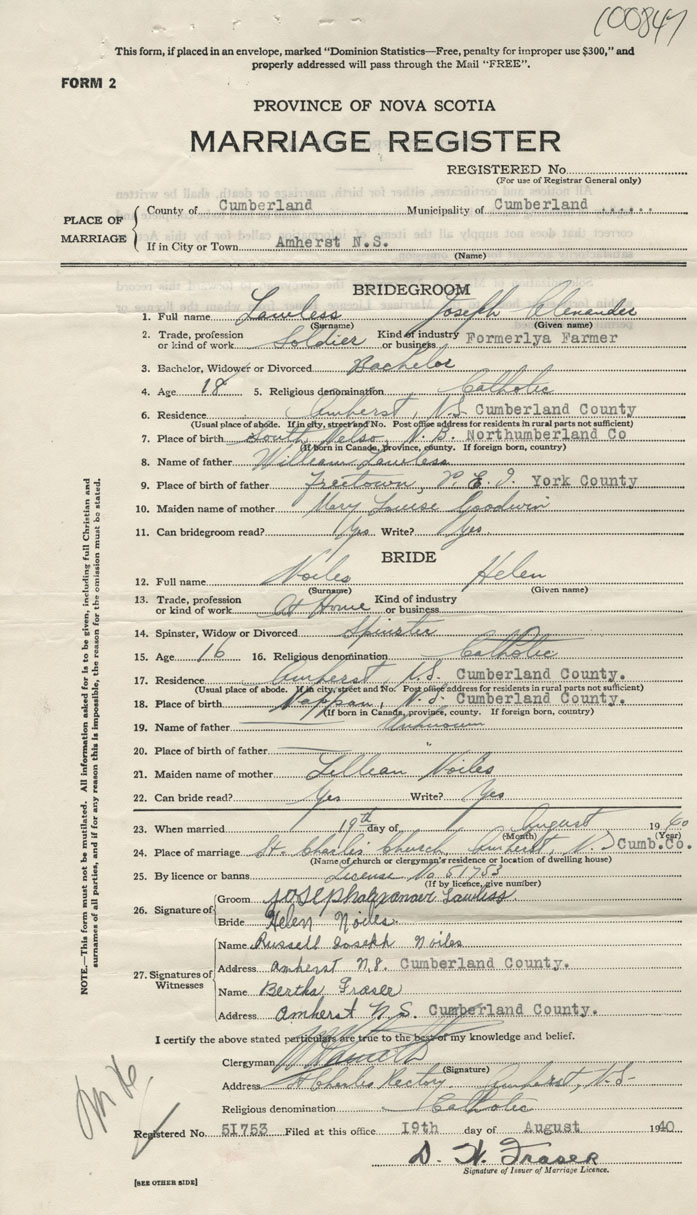 100847
This form, if placed in an envelope, marked "Dominion Statistics—Free, penalty for improper use $300," and
properly addressed will pass through the Mail "FREE".
FORM 2
PROVINCE OF NOVA SCOTIA
MARRIAGE REGISTER
REGISTERED No.
(For use of Registrar General only)
PLACE OF MARRIAGE
County of Cumberland Municipality of Cumberland
If in City or Town Amherst N.S.
(Name)
BRIDEGROOM
1. Full name Lawless Joseph Alexander
(Surname) (Given name)
2. Trade, profession or kind of work Soldier Kind of industry or business Formerlya Farmer
3. Bachelor, Widower or Divorced Bachelor
4. Age 18 5. Religious denomination Catholic
6. Residence Amherst, N.S. Cumberland County
(Usual place of abode. If in city, street and No. Post office address for residents in rural parts not sufficient)
7. Place of birth South Nelson, N.B. Northumberland Co
(If born in Canada, province, county. If foreign born, country)
8. Name of father William Lawless
9. Place of birth of father Freetown, P.E.I. York County
10. Maiden name of mother Mary Louise Goodwin
11. Can bridegroom read? Yes Write? Yes
BRIDE
12. Full name Noiles Helen
(Surname) (Given name)
13. Trade, profession or kind of work At Home Kind of industry or business
14. Spinster, Widow or Divorced Spinster
15. Age 16 16. Religious denomination Catholic
17. Residence Amherst, N.S. Cumberland County.
(Usual place of abode. If in city, street and No. Post office address for residents in rural parts not sufficient)
18. Place of birth Nappan, N.S. Cumberland County.
(If born in Canada, province, county. If foreign born, country)
19. Name of father Unknown
20. Place of birth of father "
21. Maiden name of mother Lillian Noiles
22. Can bride read? Yes Write? Yes
23. When married 19th day of August 1940
(Month) (Year)
24. Place of marriage St. Charles Church, Amherst, N.S Cumb.Co.
(Name of church or clergyman's residence or location of dwelling house)
25. By licence or banns License No 51753
(If by licence, give number)
26. Signature of
Groom Joseph Lawless
Bride Helen Noiles
27. Signatures of Witnesses
Name Russell Joseph Noiles
Address Amherst N.S. Cumberland County.
Name Bertha Fraser
Address Amherst N.S. Cumberland County.
I certify the above stated particulars are true to the best of my knowledge and belief.
Clergyman
(Signature)
Address St Charles Rectory, Amherst, N.S.
Religious denomination Catholic
Registered No. 51753 Filed at this office 19th day of August 1940
D. H. Fraser
Signature of Issuer of Marriage Licence.
[SEE OTHER SIDE]
NOTE.—This form must not be mutilated. All information asked for is to be given, including full Christian and
surnames of all parties, and if for any reason this is impossible, the reason for the omission must be stated.